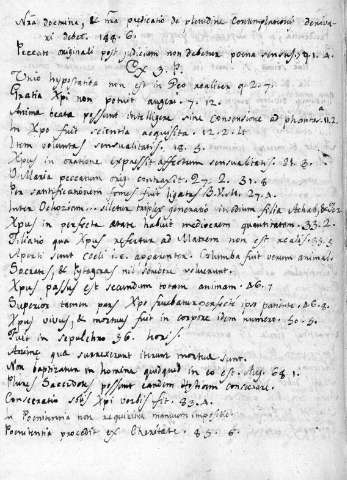 Nra doctrina, & nra predicatio de plenitudine Contemplationis deriva-
ri debet. 188. 6.
Peccato originali post judicium non debetur poena sensus,
Ex 3. P.
Unio hypostatica non est in Deo realiter q. 2. 7.
Gratia Xpi non potuit augeri. 7. 12.
Anima beata possunt intelligere sine conversione ad phantas.
In Xpo fuit scientia acquisita. 12. 2.
Item voluntas sensualitatis. 18. 3.
Xpus in oratione expressit affectum sensualitatis. 21. 3.
D. Maria peccatum orig. contraxit. 27. 2. 31. 8
Per sanctificationem fomes fuit ligatus B. V. 27. 3.
Inter Ochoziam... siletur triplex generatio in odium filia Achab,
Xpus in perfecta aetate habuit mediocrem quantitatem. 33. 2.
Filiatio qua Xpus refertur ad Matrem non est realis. 35. 5
Aperti sunt Coeli i.e. apparenter. Columba fuit verum animal.
Socrates, & Pytagoras nil scribere voluerunt.
Xpus passus est secundum totam animam. 46. 7
Superior tamen pars Xpo fruebatur perfecte ipso patiente. 46. 8.
Xpus vivus, & mortuus fuit in corpore idem numero. 50. 5.
Fuit in sepulchro 36. horis.
Animae qua surrexerunt iterum mortuae sunt.
Non baptizatur in homine quidquid in eo est. 68 1.
Plures Sacerdotes possunt eandem hostiam consecrare.
Consecratio solis Xpi verbis fit. 83. 4.
In Poenitentia non requiritur manuum impositio.
Poenitentia procedit ex Charitate. 85. 6.